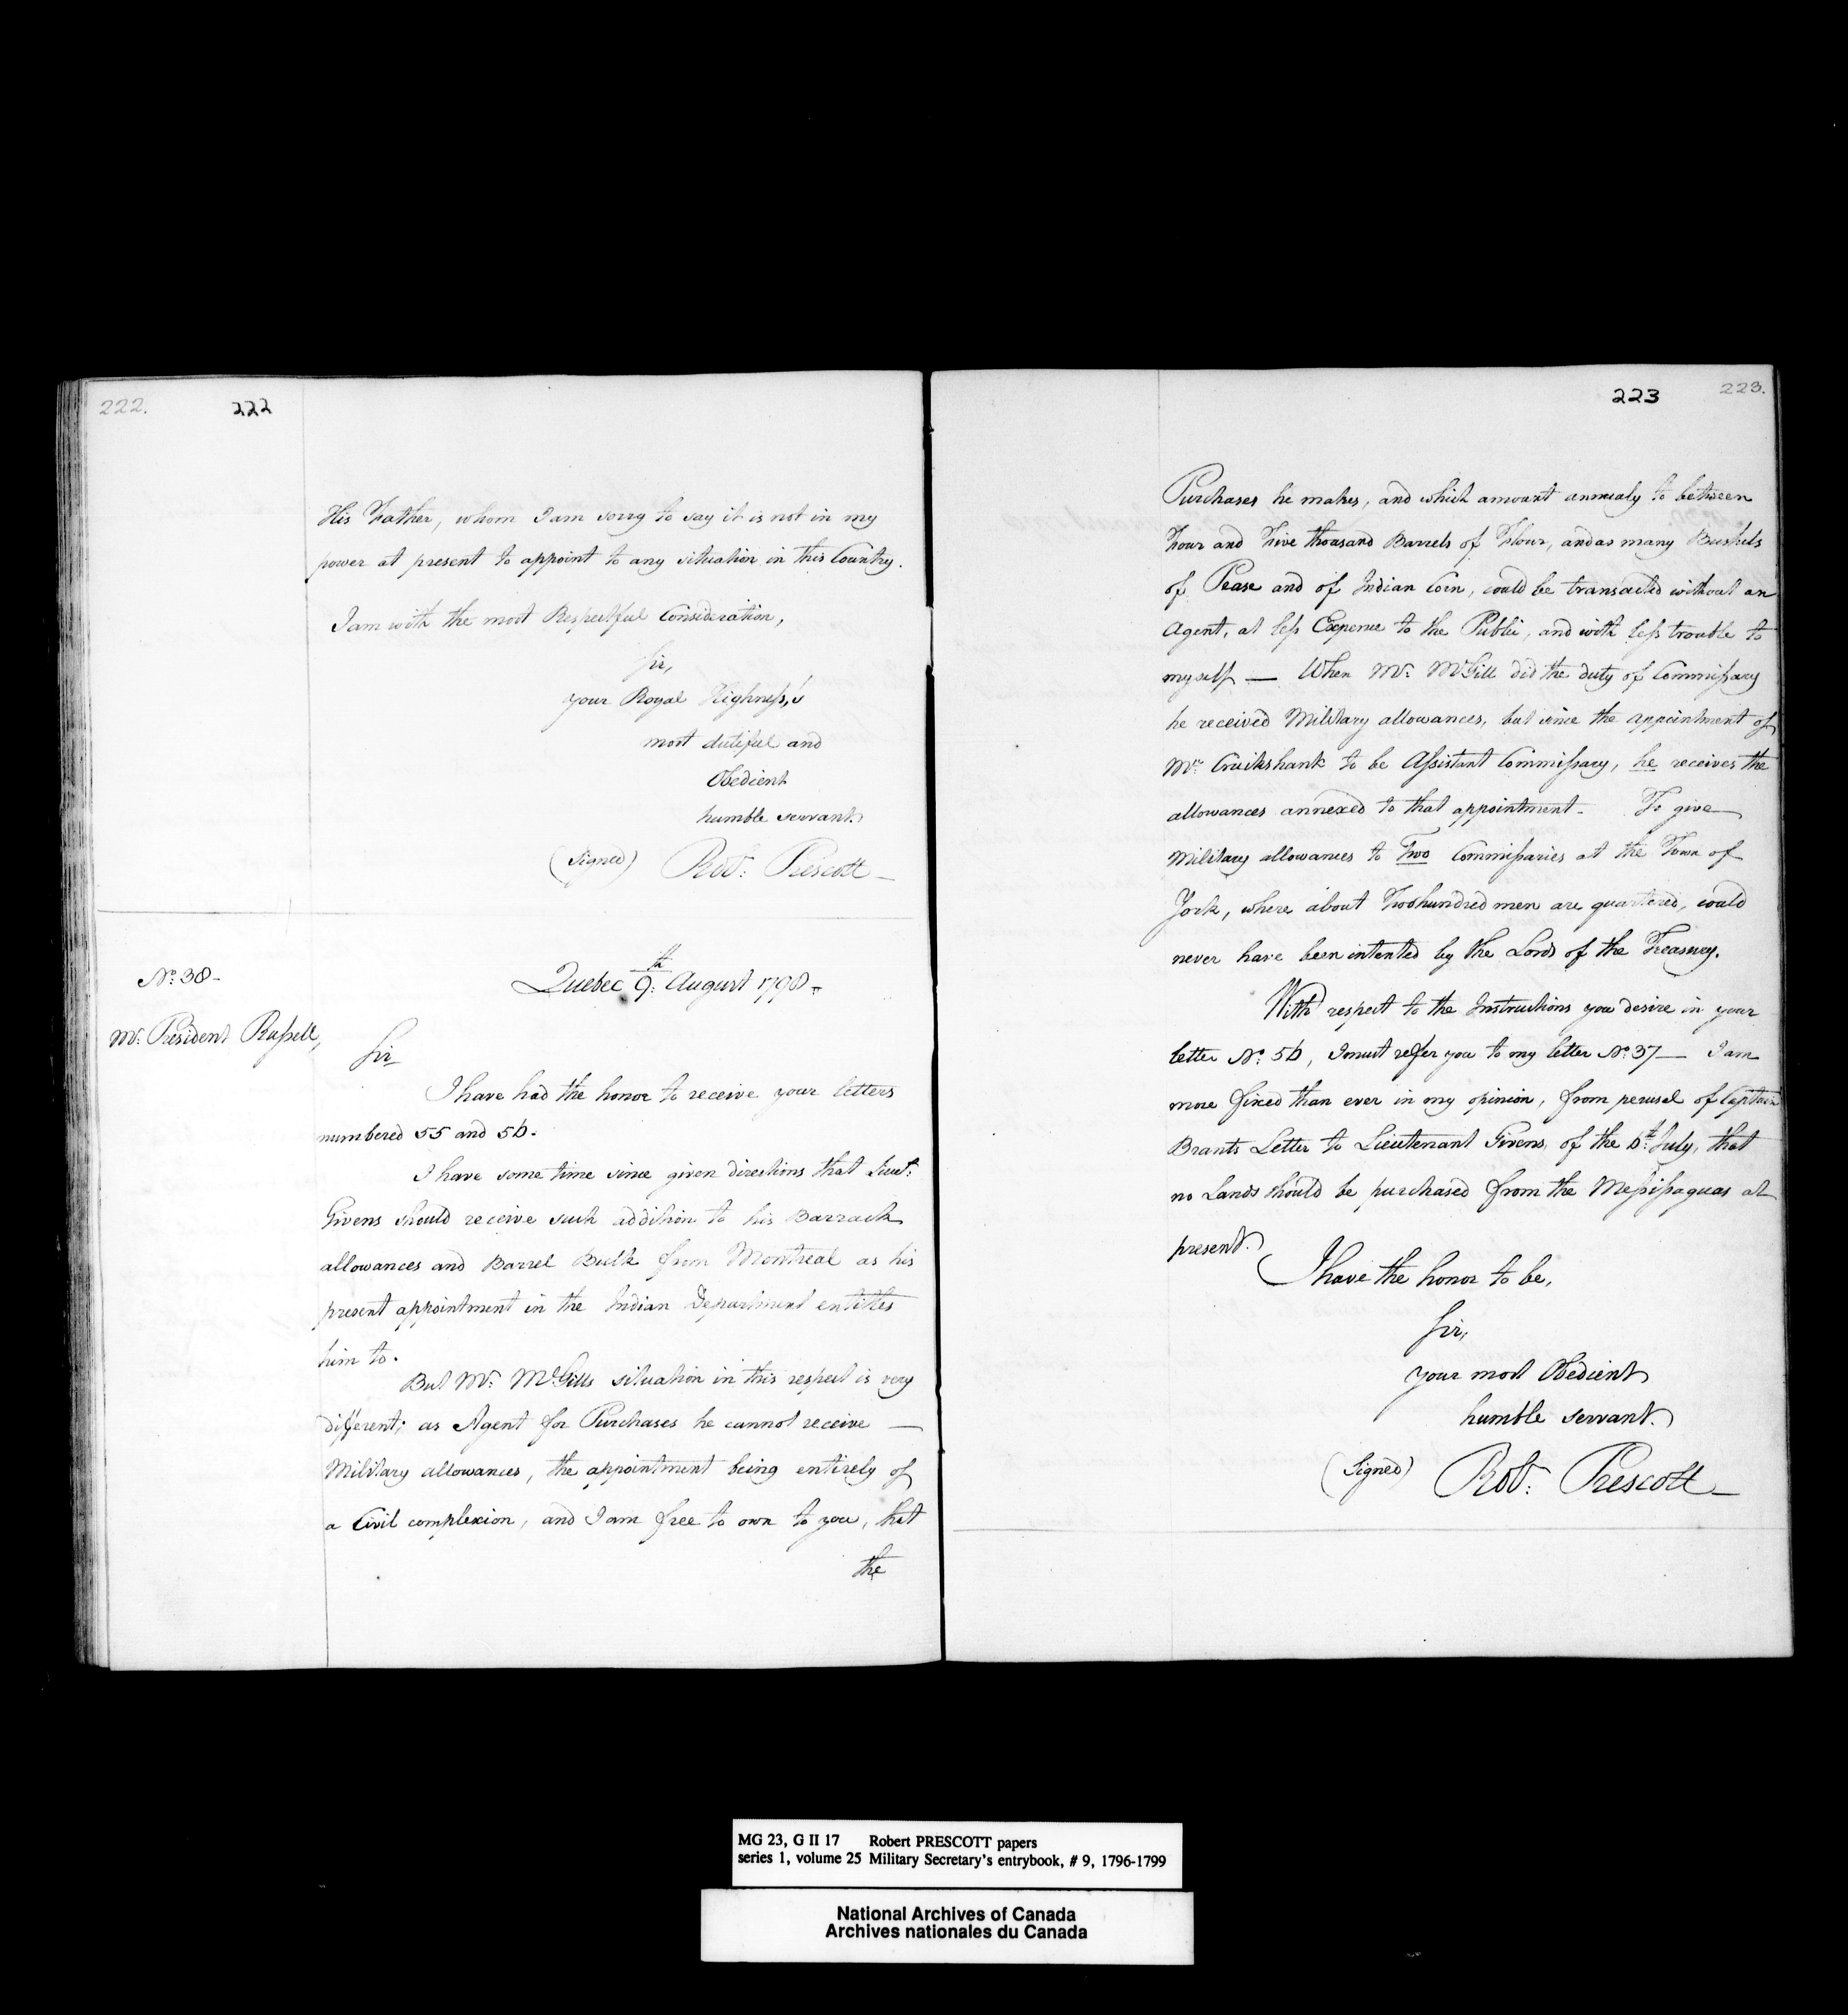 222.
222
His Father, whom I am sorry to say it is not in my
power at present to appoint to any situation in this Country.
I am with the most Respectful Consideration,
Sir,
your Royal Highness,'s
most dutiful and
Obedient
humble servant
(Signed) Robt: Prescott —
No: 38 -
Quebec 9:th August 1798 -
Mr: President Russell,
Sir
I have had the honor to receive your letters
numbered 55 and 56.
I have some time since given directions that Lieut:
Givens should receive such addition to his Barrack
allowances and Barrel Bulk from Montreal as his
present appointment in the Indian Department entitles
him to.
But Mr: McGills situation in this respect is very
different; as Agent for Purchases he cannot receive —
Military allowances, the appointment being entirely of
a Civil complexion, and I am free to own to you, that
the
223
223.
Purchases he makes, and which amount annualy to between
Four and Five thousand Barrels of Flour, and as many Bushels
of Pease and of Indian Corn, could be transacted without an
Agent, at less Expence to the Public, and with less trouble to
myself — When Mr: McGill did the duty of Commissary
he received Military allowances, but since the appointment of
Mr: Cruikshank to be Assistant Commissary, he receives the
allowances annexed to that appointment - To give
Military allowances to Two Commissaries at the Town of
York, where about Two hundred men are quartered, could
never have been intented by the Lords of the Treasury.
With respect to the Instructions you desire in your
letter No: 56, I must refer you to my letter No: 37 — I am
more fixed than ever in my opinion, from perusel of Captain
Brants Letter to Lieutenant Givens, of the 6th: July, that
no Lands should be purchased from the Messissaguas at
present.
I have the honor to be,
Sir,
your most Obedient
humble servant.
(Signed) Robt: Prescott —
MG 23, G II 17 Robert PRESCOTT papers
series 1, volume 25 Military Secretary's entrybook, # 9, 1796-1799
National Archives of Canada
Archives nationales du Canada